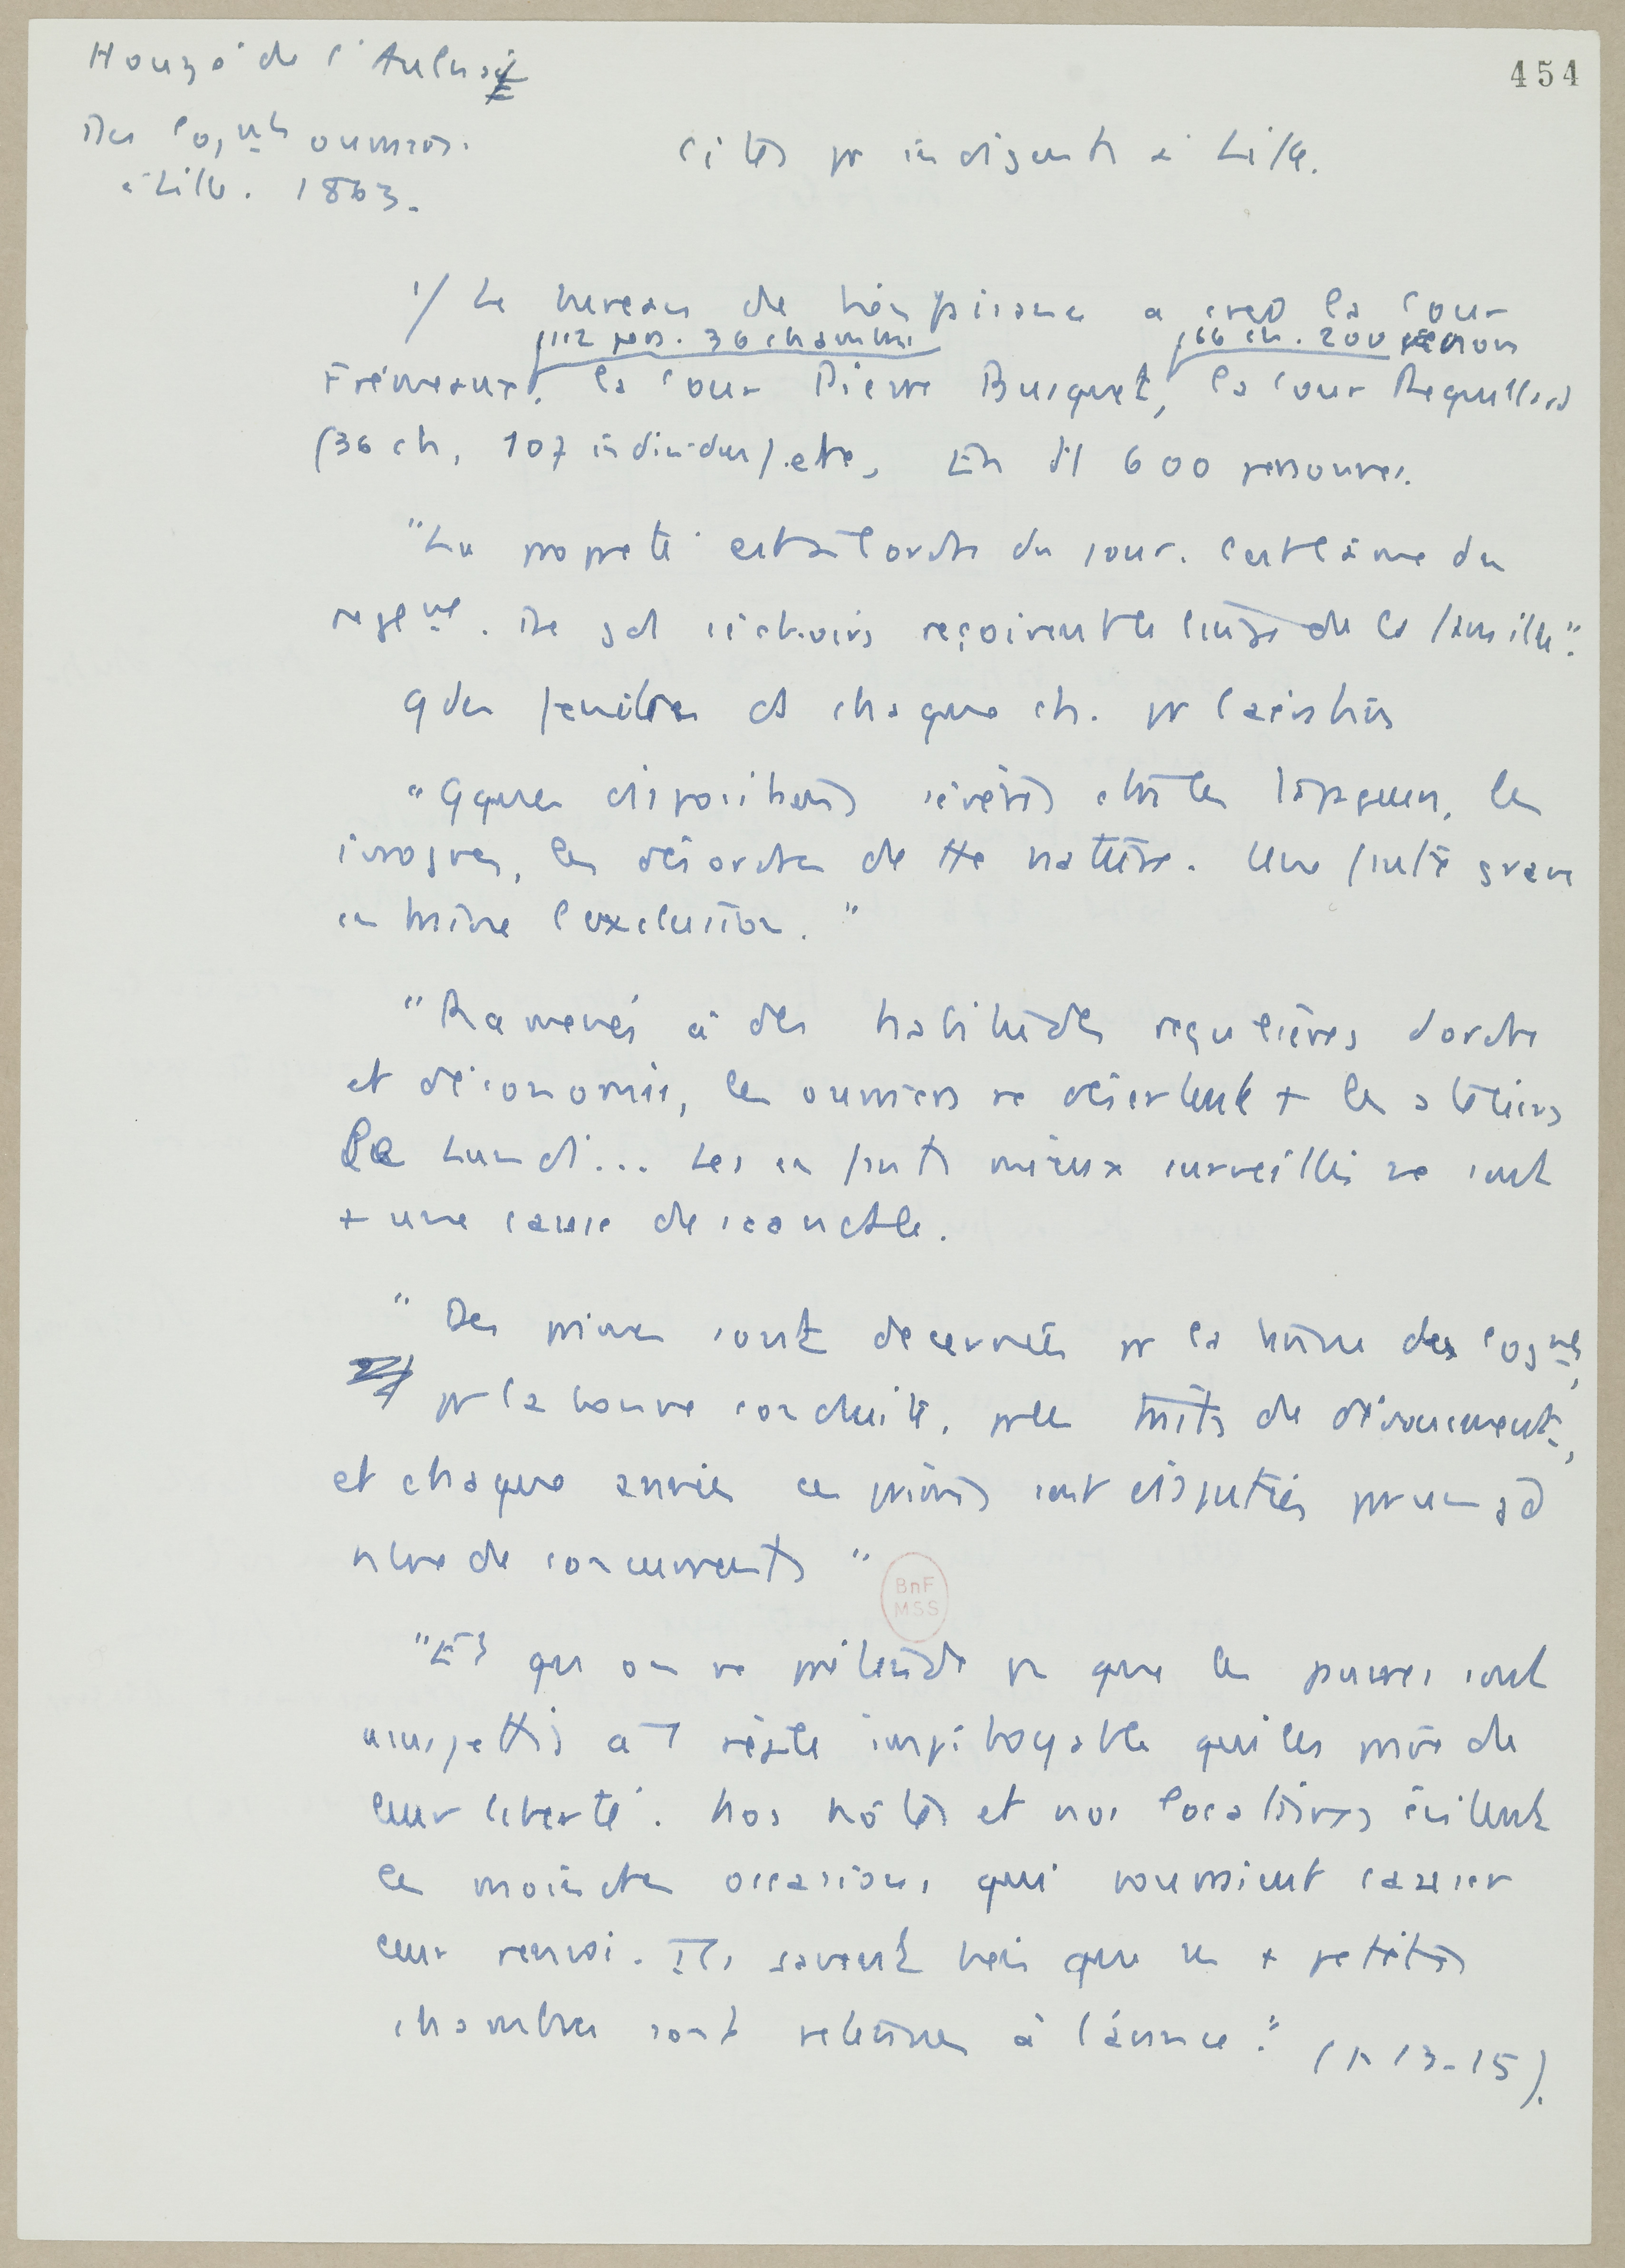 454
Houzé de l'Aulnoit
Des log^nts ouvriers.
à Lille. 1863.
Cités pr indigents à Lille.
1/ Le bureau de bienfaisance a créé la Cour
112 pers. 36 chambres
66 ch. 200 personnes
Frémeaux, la Cour Pierre Busquet, la Cour
(36 ch, 107 individus) etc, En tt 600 personnes.
"La propreté est à l'ordre du jour. C'est l'âme du
regl^nt. De gd séchoirs reçoivent le linge de la famille".
Gdes fenêtres ds chaque ch. pr l'aération
"Qques dispositions sévères ctre les tapageurs, les
ivrognes, les désordres de tte nature. Une faute grave
entraîne l'exclusion."
"Ramenés à des habitudes régulières d'ordre
et d'économie, les ouvriers ne désertent + les ateliers
le Lundi... Les enfants mieux surveillés ne sont
+ une cause de scandale.
"Des primes sont décernées pr la tenue des log^nts,
pr la bonne conduite, pr les traits de dévouement,
et chaque année ces primes sont disputées pr un gd
nbre de concurrents"
"Et qu'on ne prétende pas que les pauvres sont
assujettis à 1 règle impitoyable qui les prive de
leur liberté. Nos hôtes et nos locataires évitent
les moindres occasions qui pourraient causer
leur renvoi. Ils savent bien que les + petites
chambres sont retenues à l'avance." (p. 13-15).
BnF
MSS